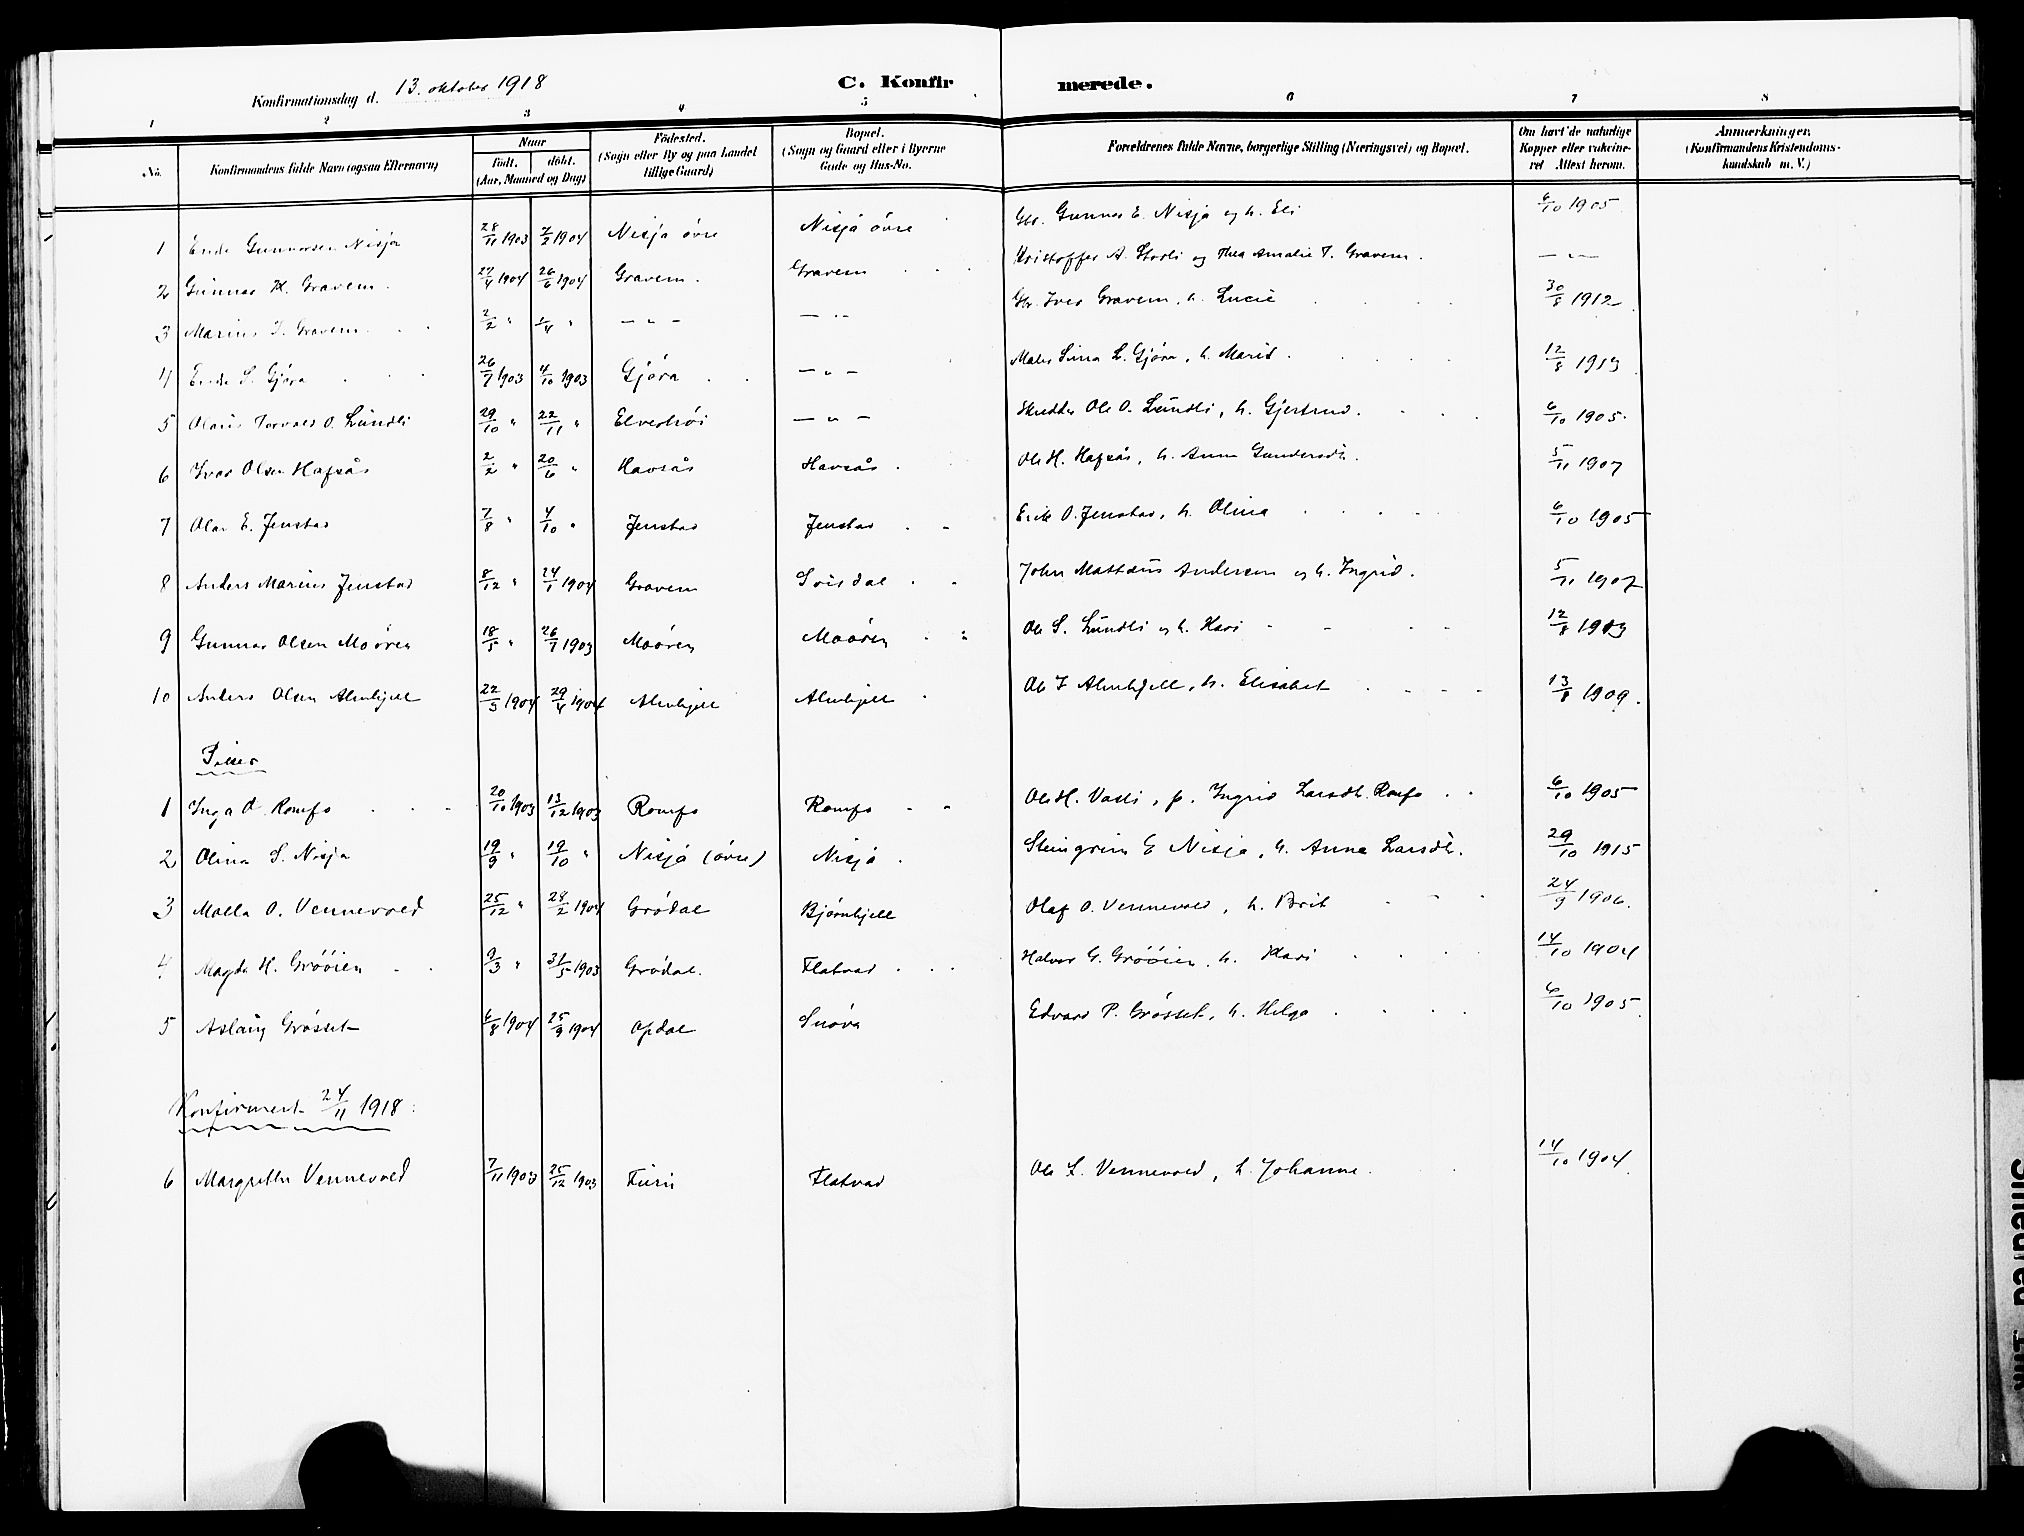 Konfirmationsdag d. 13. oktober 1918
C. Konfirmerede.
1 2 3 4 5 6 7 8
No. Konfirmandens fulde Navn (ogsaa Efternavn) Naar født. døbt. (Aar, Maaned og Dag) Fødested. (Sogn eller By og paa Landet tillige Gaard) Bopæl. (Sogn og Gaard eller i Byerne Gade og Hus-No. Forældrenes fulde Navne, borgerlige Stilling (Næringsvei) og Bopæl. Om havt de naturlige Kopper eller vaccineret Attest herom. Anmærkninger. (Konfirmandens Kristendomskundskab m. V.)
1 Endre Gunnarsen Nisja 28/11 1903 7/2 1904 Nisja øvre Nisja øvre Gbr. Gunnar E. Nisja og h. Eli 6/10 1905
2 Gunnar K. Gravem 27/4 1904 26/6 1904 Gravem Gravem Kristoffer A. Storli og Thea Amalie I. Gravem 〃
3 Marius I. Gravem 2/2 〃 1/4 〃 — 〃 — — 〃 — Gbr. Iver Gravem, h. Lucie 30/8 1912
4 Endre S. Gjøra 26/7 1903 4/10 1903 Gjøra — 〃 — Maler Sina L. Gjøra, h. Marit 12/8 1913
5 Olaus Torvald O. Lundli 29/10 〃 22/11 〃 Elverhøi — 〃 — Skrædder Ole O. Lundli, h. Gjertrud 6/10 1905
6 Ivar Olsen Hafsås 2/2 〃 20/6 〃 Havsås Havsås Ole H. Hafsås, h. Anne Gundersdtr. 5/11 1907
7 Olav E. Jenstad 7/8 〃 4/10 〃 Jenstad Jenstad Erik O. Jenstad, h. Olina 6/10 1905
8 Anders Marius Jenstad 8/12 〃 24/1 1904 Gravem Svisdal John Mattæus Andersen og h. Ingrid 5/11 1907
9 Gunnar Olsen Moøren 18/5 〃 26/7 1903 Moøren Moøren Ole S. Lundli og h. Kari 12/8 1913
10 Anders Olsen Almhjell 22/3 1904 29/4 1904 Almhjell Almhjell Ole I Almhjell, h. Elisabet 13/8 1909
Piker
1 Inga O. Romfo 20/10 1903 13/12 1903 Romfo Romfo Ole H. Vasli, p. Ingrid Larsdtr. Romfo 6/10 1905
2 Olina S. Nisja 19/9 〃 19/10 〃 Nisja (øvre) Nisja Steingrim E Nisja, h. Anna Larsdtr. 29/10 1915
3 Malla O. Vennevold 25/12 〃 28/2 1904 Grødal Bjørnhjell Olaf O. Vennevold, h. Brit 24/9 1906
4 Magda H. Grøøien 9/3 〃 31/5 1903 Grødal Flatvad Halvor G. Grøøien, h. Kari 14/10 1904
5 Aslaug Grøsset 6/8 1904 25/9 1904 Opdal Snøva Edvard P. Grøsset, h. Helga 6/10 1905
Konfirmert 24/11 1918:
6 Margrethe Vennevold 7/11 1903 25/12 1903 Furu Flatvad Ole L. Vennevold, h. Johanne 14/10 1904